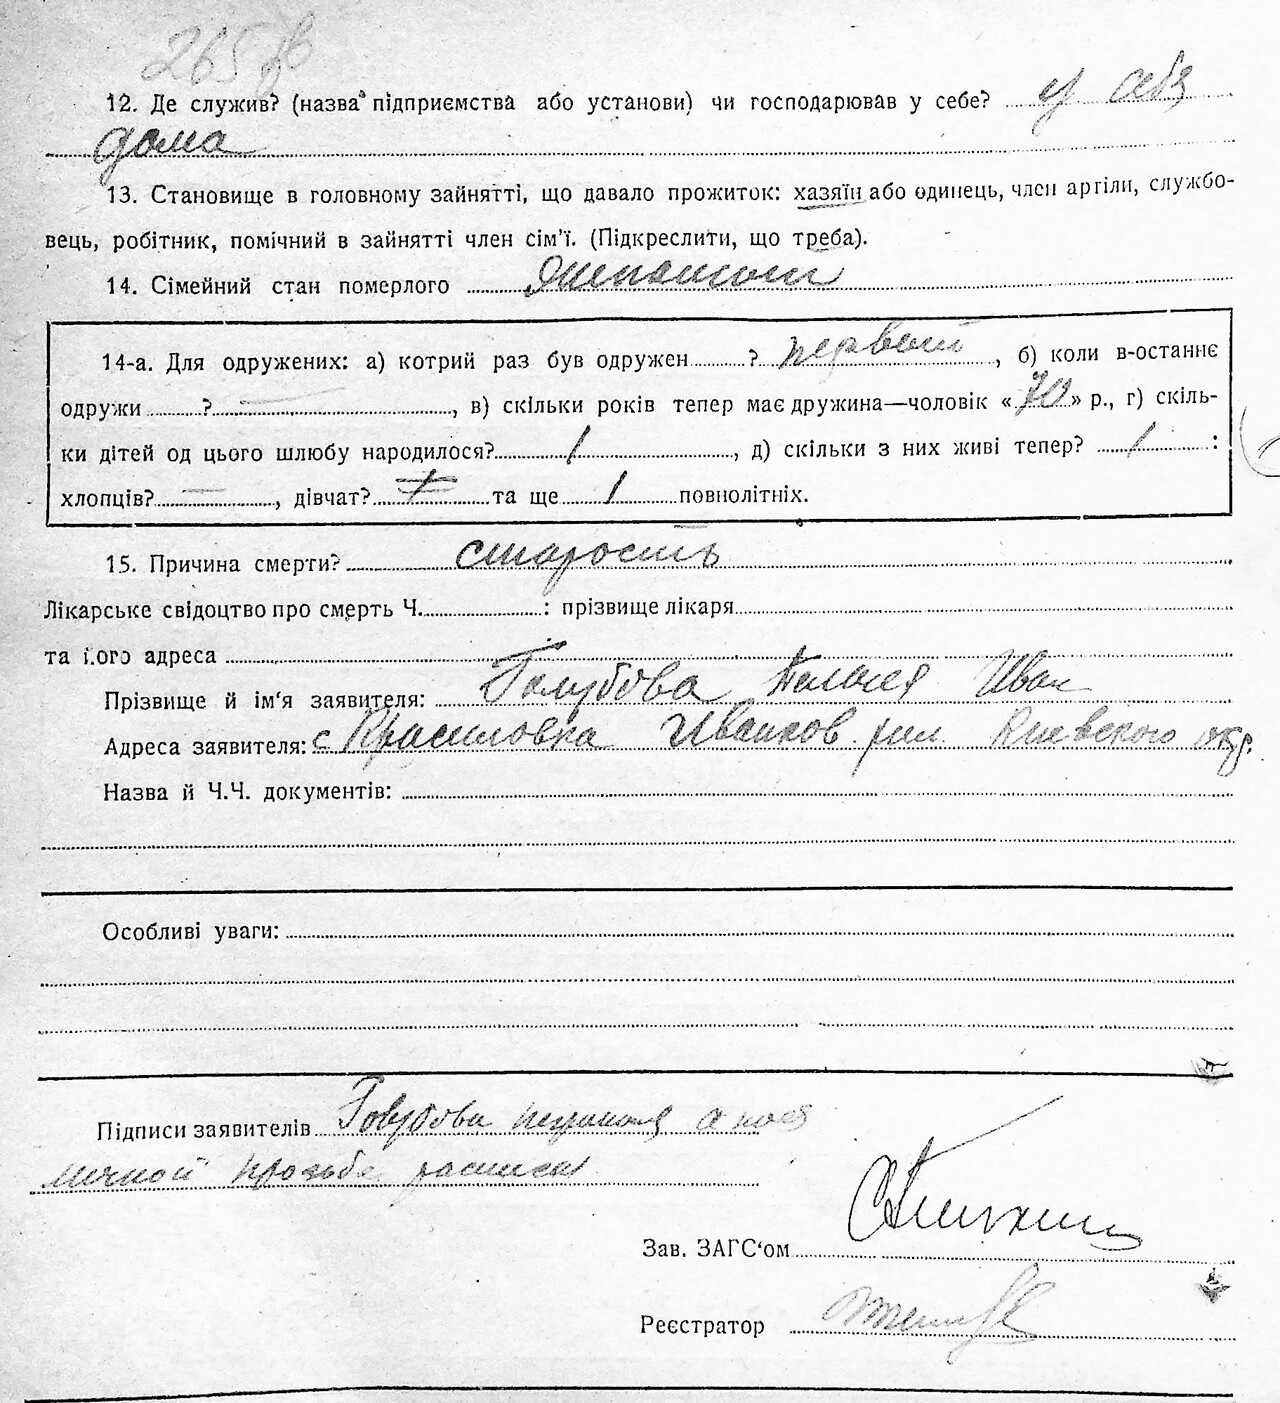 265
12. Де служив? (назва підприємства або установи) чи господарював у себе? у себя
дома
13. Становище в головному зайнятті, що давало прожиток: хазяїн або одинець, член артіли, службо-
вець, робітник, помічний в зайнятті член сім'ї. (Підкреслити, що треба).
14. Сімейний стан померлого женатый
14-а. Для одружених: а) котрий раз був одружен ? первый, б) коли в-останнє
одружи ? —, в) скільки років тепер має дружина—чоловік «70» р., г) скіль-
ки дітей од цього шлюбу народилося? 1, д) скільки з них живі тепер? 1:
хлопців? —, дівчат? 1 та ще 1 повнолітніх.
15. Причина смерти? старость
Лікарське свідоцтво про смерть Ч. : прізвище лікаря
та його адреса
Прізвище й ім'я заявителя: Голубова Пелагея Иван
Адреса заявителя: с Красиловка Иванков. Киевского окр.
Назва й Ч.Ч. документів:
Особливі уваги:
Підписи заявителів Голубова
личной просьбе
Зав. ЗАГС'ом
Реєстратор